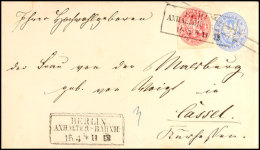 Ihrer Hochwohlgeboren
BERLIN
ANHALTER-BAHNH
15 4 * 11
der Frau von der Malsburg
geb. von
Cassel
Kurhessen
BERLIN
ANHALTER-BAHNH
15 4 * 11